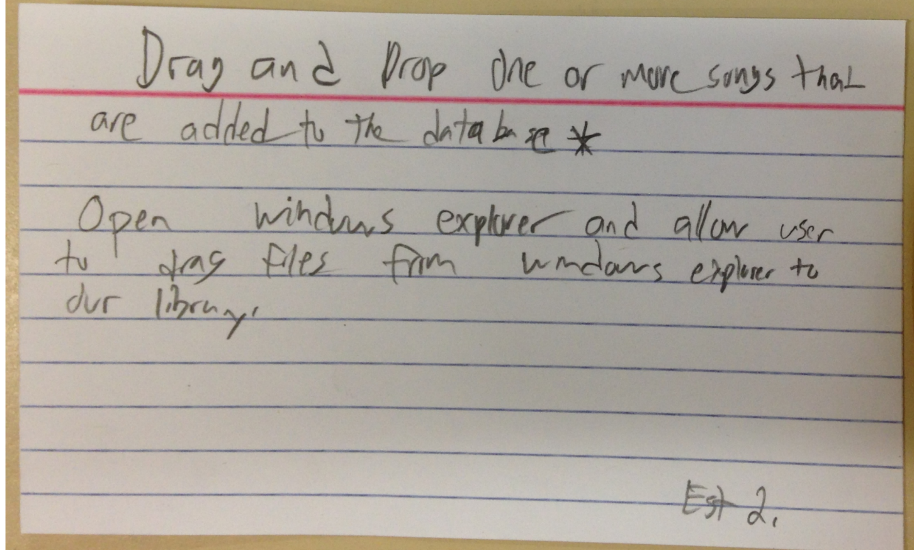 Drag and Drop One or more songs that
are added to the database *
Open windows explorer and allow user
to drag files from windows explorer to
our library.
Est 2.